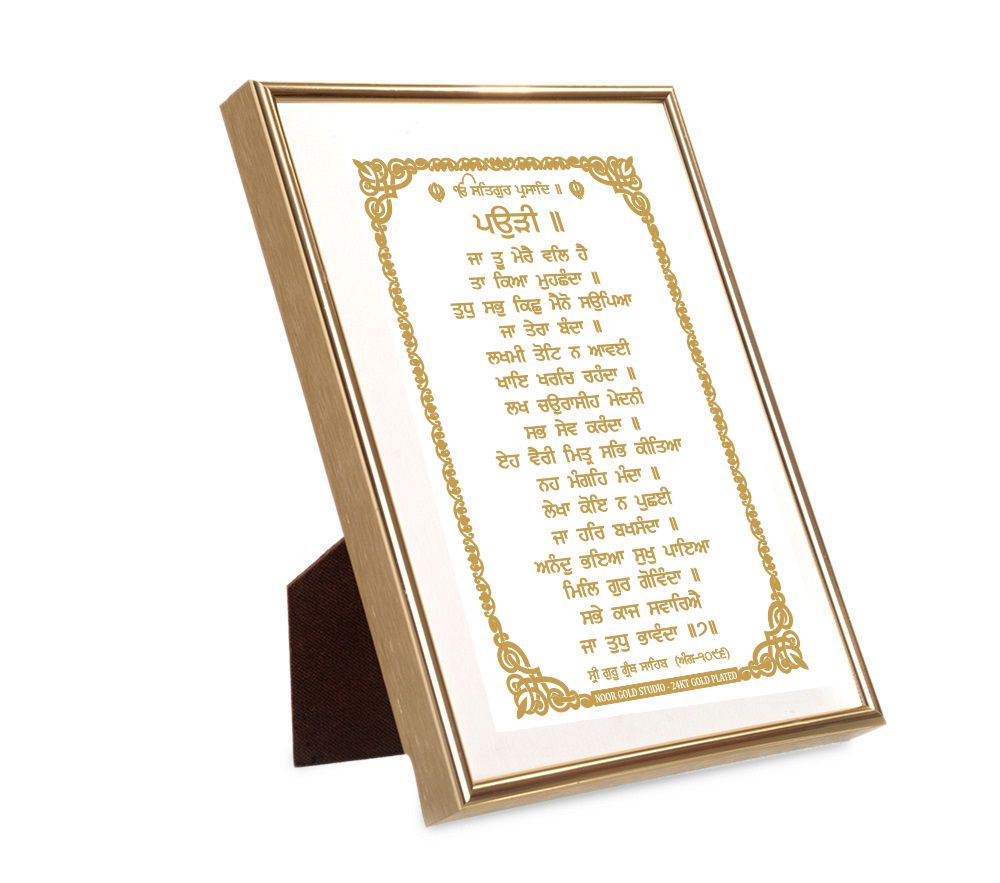 ੴ ਸਤਿਗੁਰ ਪ੍ਰਸਾਦਿ ॥
ਪਉੜੀ ॥
ਜਾ ਤੂ ਮੇਰੈ ਵਲਿ ਹੈ
ਤਾ ਕਿਆ ਮੁਹਛੰਦਾ ॥
ਤੁਧੁ ਸਭੁ ਕਿਛੁ ਮੈਨੋ ਸਉਪਿਆ
ਜਾ ਤੇਰਾ ਬੰਦਾ ॥
ਲਖਮੀ ਤੋਟਿ ਨ ਆਵਈ
ਖਾਇ ਖਰਚਿ ਰਹੰਦਾ ॥
ਲਖ ਚਉਰਾਸੀਹ ਮੇਦਨੀ
ਸਭ ਸੇਵ ਕਰੰਦਾ ॥
ਏਹ ਵੈਰੀ ਮਿਤ੍ਰ ਸਭਿ ਕੀਤਿਆ
ਨਹ ਮੰਗਹਿ ਮੰਦਾ ॥
ਲੇਖਾ ਕੋਇ ਨ ਪੁਛਈ
ਜਾ ਹਰਿ ਬਖਸੰਦਾ ॥
ਅਨੰਦੁ ਭਇਆ ਸੁਖੁ ਪਾਇਆ
ਮਿਲਿ ਗੁਰ ਗੋਵਿੰਦਾ ॥
ਸਭੇ ਕਾਜ ਸਵਾਰਿਐ
ਜਾ ਤੁਧੁ ਭਾਵੰਦਾ ॥੭॥
ਸ੍ਰੀ ਗੁਰੂ ਗ੍ਰੰਥ ਸਾਹਿਬ (ਅੰਗ-੧੦੯੬)
NOOR GOLD STUDIO - 24KT GOLD PLATED